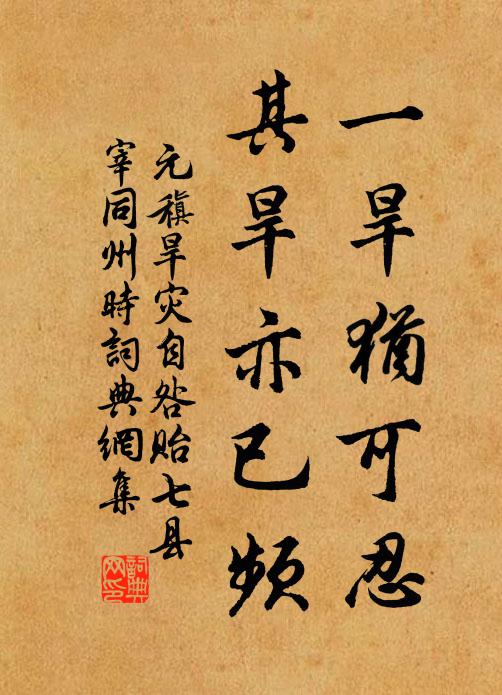 一旱猶可忍
其旱亦已频
元稹旱灾自咎贻七县
宰同州時詞典網集
詞典
网印